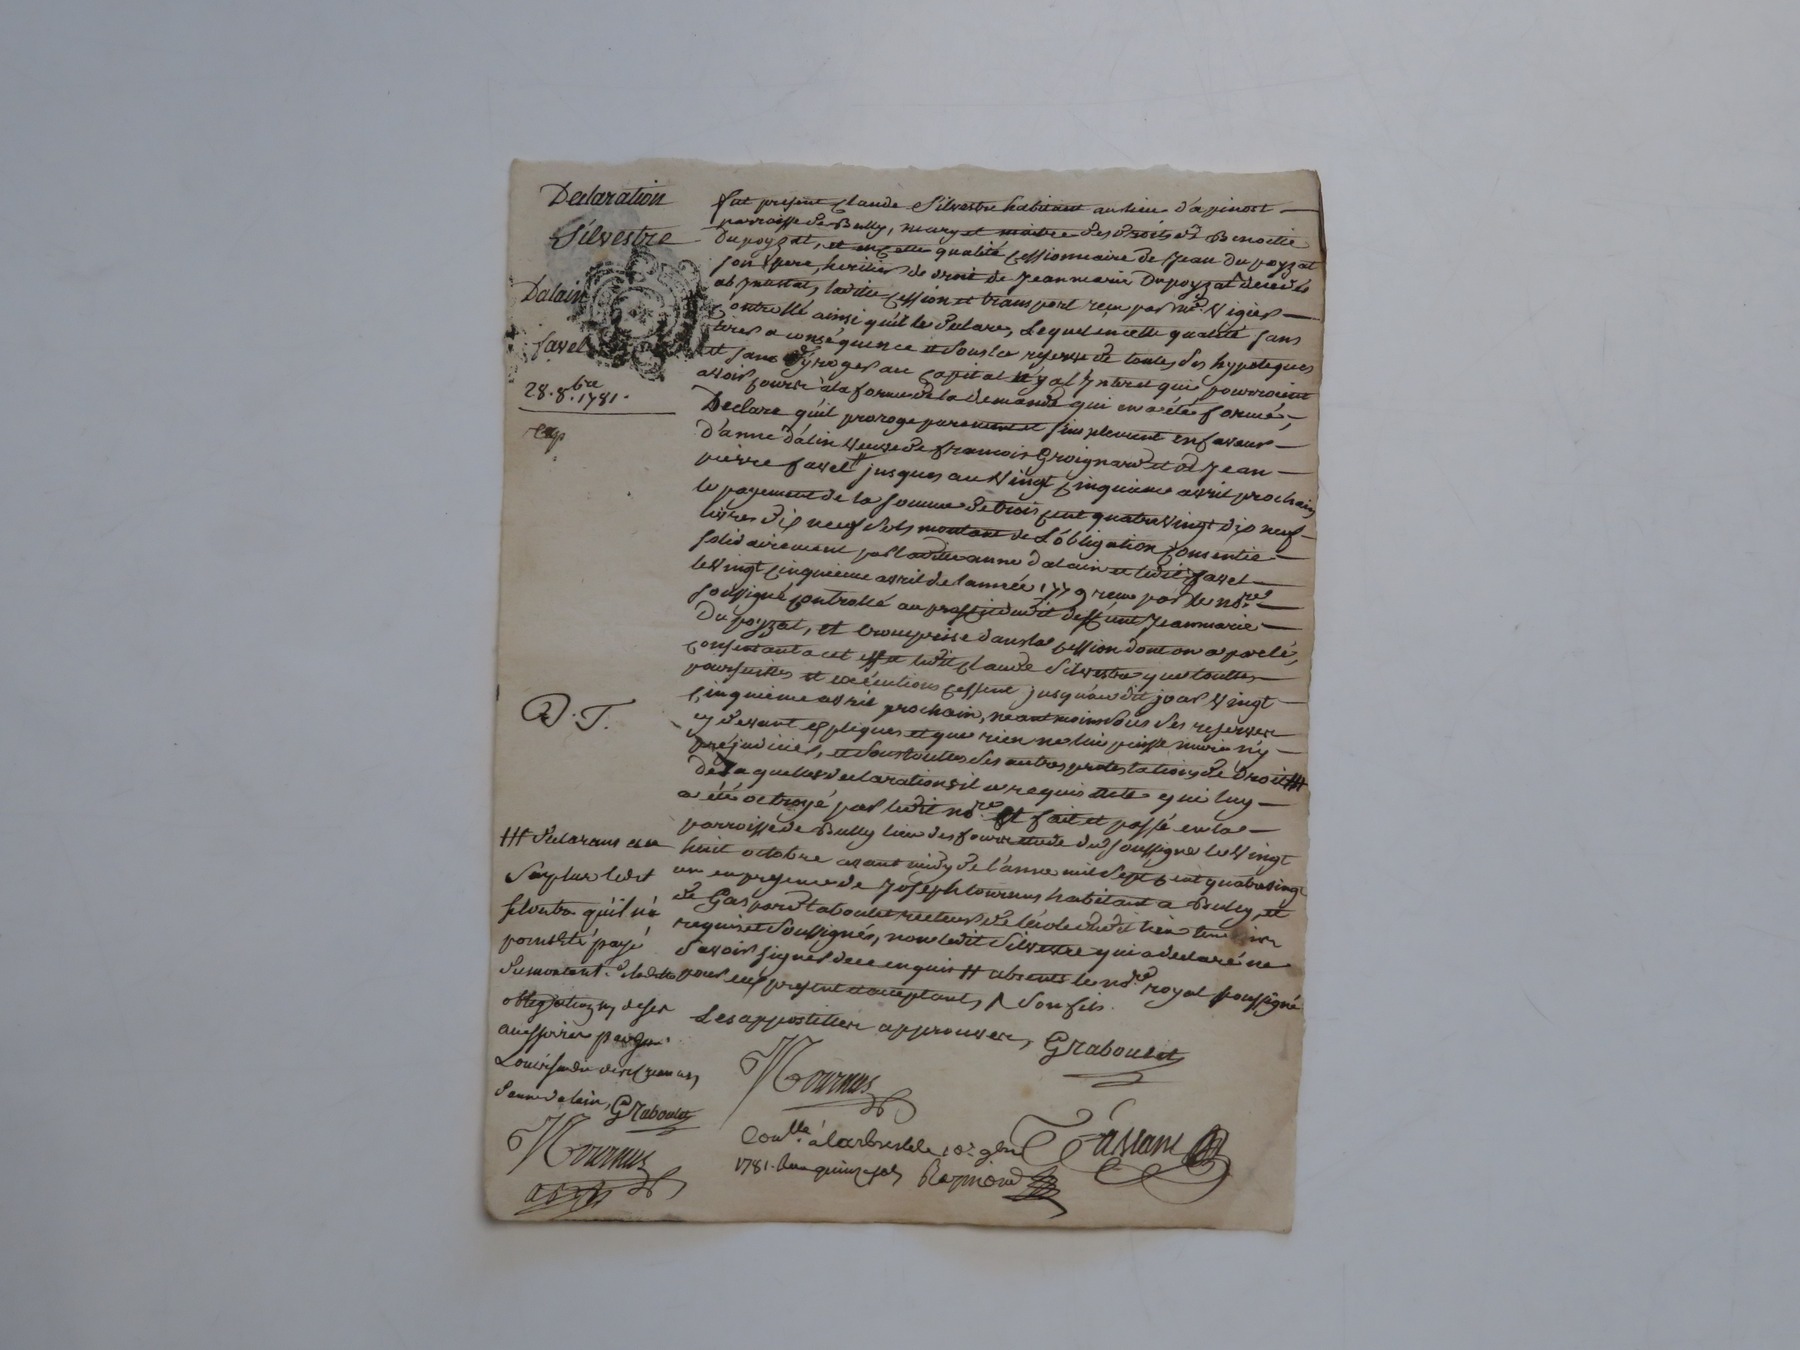 Declaration
Silvestre
Dalain
favel
28. 8.bre 1781.
exp
fut présent Claude Silvestre habitant au lieu d'apinost
parroisse de Bully, mary et maitre des droits de Benoitte
Dupoyzat, et en cette qualité cessionnaire de Jean Dupoyzat
son père, heritier de droit de Jeanmarie Dupoyzat decedé
ab intestat, laditte cession et transport recu par me. Vigier
Controllé ainsi qu'il le declare, Lequel en cette qualité sans
tirer a conséquence et sous la reserve de toutes ses hypoteques
et sans déroger au capital n'y a l'interet qui pourroient
avoir couru a la forme de la demande qui en a été formée,
Declare qu'il proroge purement et simplement en faveur
d'anne dalin veuve de francois Groignard et de Jean
pierre favel # jusques au Vingt cinquieme avril prochain
le payement de la somme de trois cent quatre vingt dix neuf
livres dix neuf sols montant de L'obligation consentie
solidairement par laditte anne dalain et ledit favel
le vingt cinquieme avril de l'année 1779 recu par le nore
soussigné controllé au proffit dudit deffunt Jeanmarie
Dupoyzat, et comprise dans la cession dont on a parlé,
consentant a cet effet ledit Claude Silvestre que toutes
poursuittes et exécutions cessent jusqu'au dit jour vingt
cinquieme avril prochain, neantmoins sous ses reserves
cy devant expliquées et que rien ne lui puisse nuire n'y
préjudicier, et sous toutes ses autres protestations de droit ###
De laquelle declaration il a requis acte qui luy
a été octroyé par ledit nore. fait et passé en la
parroisse de Bully lieu des fours etude du soussigné le Vingt
huit octobre avant midy de l'année mil sept cent quatre vingt
un en presence de Joseph tournus habitant a Bully, et
de Gaspard taboulet recteur de l'école dudit lieu temoins
requis et soussignés, non ledit Silvestre qui a declaré ne
savoir signer de ce enquis # absents le nore royal soussigné
pour eux present et acceptant, ^ son fils.
Les appostilles approuvées, GTaboulet
D. T.
### declarant au
surplus ledit
silvestre qu'il n'a
point été payé
du montant de laditte
obligation, n'y
d'anne dalain, GTaboulet
JTournus
JTournus
Conllé à larbresle le 10. 9bre
1781. Recu quinze sols Raymond